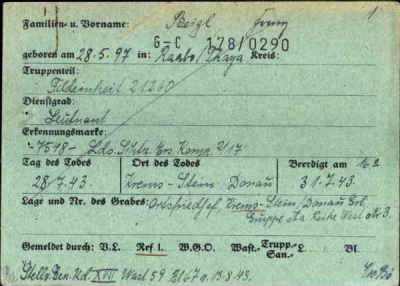 1
Familien- u. Vorname: Beigl Franz
G-C 178/0290
geboren am 28.5.97 in: Raabs/Thaya Kreis:
Truppenteil:
Feldeinheit 21260
Dienstgrad:
Leutnant
Erkennungsmarke:
-7548- Lds. Schtz. Ers. Komp. 2/17
Tag des Todes Ort des Todes Beerdigt am 162
28.7.43. Krems-Stein Donau 31.7.43.
Lage und Nr. des Grabes: Ortsfriedhof, Krems-Stein/Donau
Gruppe Reihe West Nr 3.
Gemeldet durch: V.L. Ref. I. W.G.O. Wast.- Trupp.- San.- L. Bl.
Stellv. Gen. Kd. XVII Wast 59 Bl 67 v. 13.8.43.